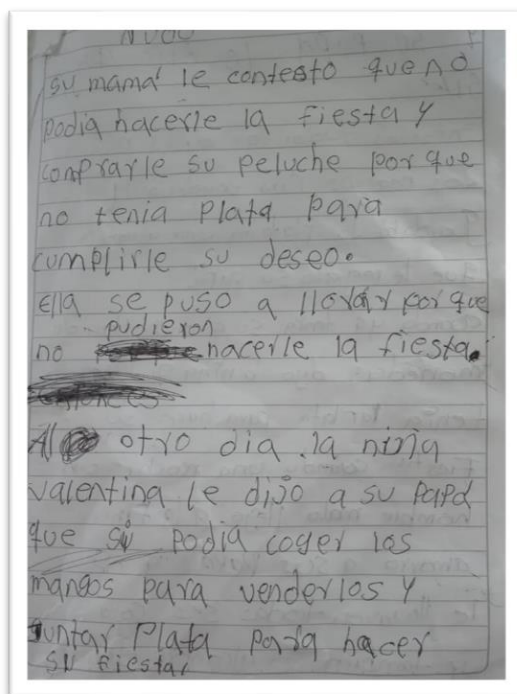 NUDO
su mamá le contesto que no
podia hacerle la fiesta y
comprarle su peluche por que
no tenia plata para
cumplirle su deseo.
Ella se puso a llorar por que
pudieron
no hacerle la fiesta.
Al otro dia. la niña
valentina le dijo a su papá
que si podia coger los
mangos para venderlos y
juntar plata para hacer
su fiesta